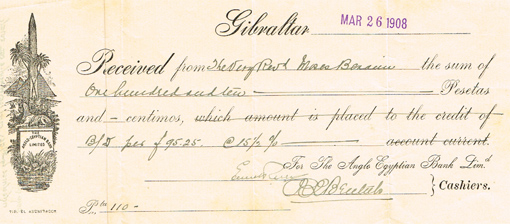 Gibraltar MAR 26 1908
Received from The Very Revd Moses Benaim the sum of
One hundred and ten Pesetas
and - centimos, which amount is placed to the credit of
B/D per £95.25 @ 15½ % account current.
For The Anglo Egyptian Bank Limd
Cashiers.
Pts 110-
THE
ANGLO-EGYPTIAN BANK
LIMITED